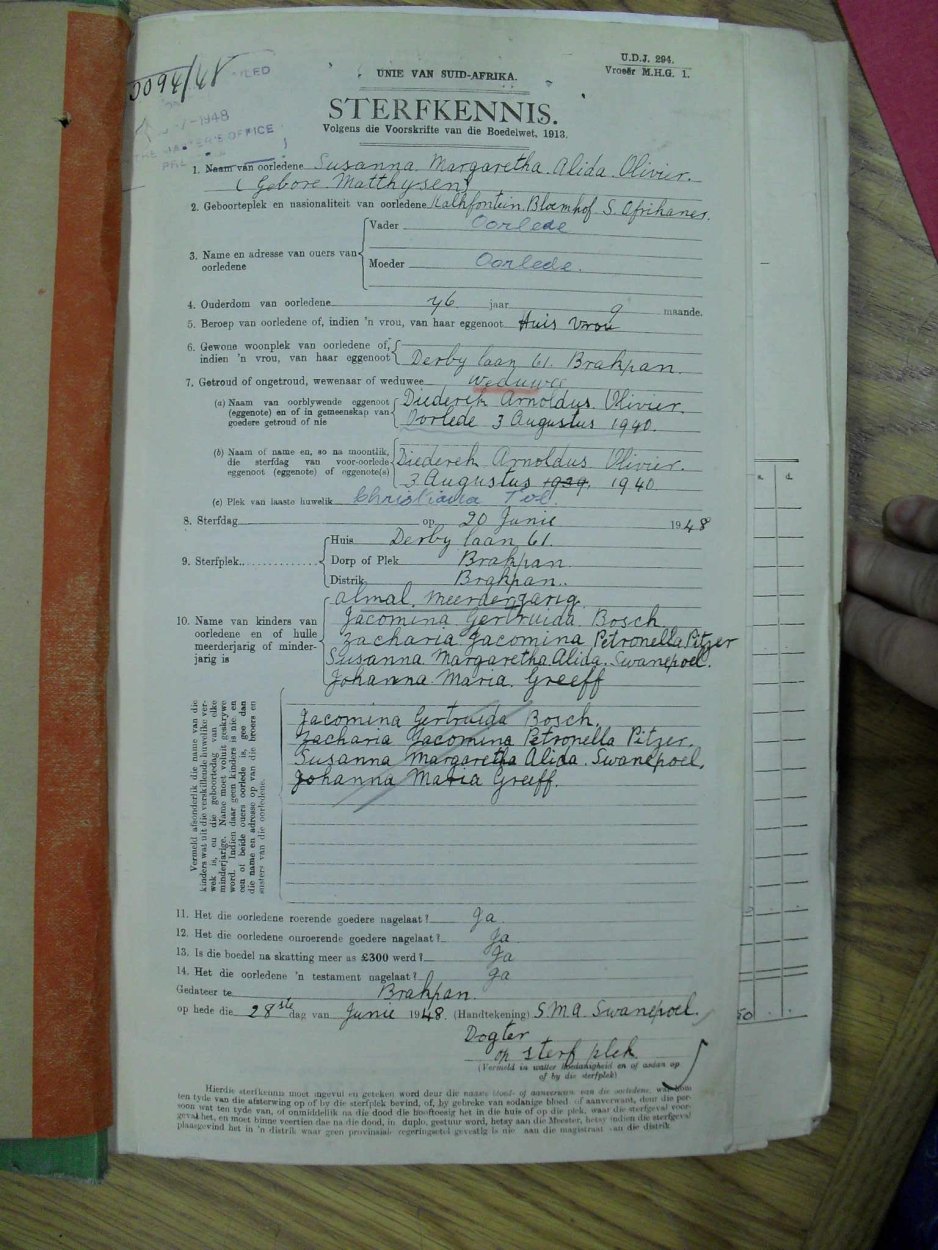 0094/48
-7-1948
THE MASTER'S OFFICE
U.D.J. 294.
Vroeër M.H.G. 1.
UNIE VAN SUID-AFRIKA.
STERFKENNIS.
Volgens die Voorskrifte van die Boedelwet, 1913.
1. Naam van oorledene Susanna Margaretha Alida Olivier
(Gebore Matthysen)
2. Geboorteplek en nasionaliteit van oorledene Kalkfontein Bloemhof S. Afrikanes.
3. Name en adresse van ouers van oorledene
Vader Oorlede
Moeder Oorlede.
4. Ouderdom van oorledene 76 jaar 9 maande.
5. Beroep van oorledene of, indien 'n vrou, van haar eggenoot Huis vrou
6. Gewone woonplek van oorledene of,
indien 'n vrou, van haar eggenoot Derby laan 61. Brakpan.
7. Getroud of ongetroud, wewenaar of weduwee weduwee
(a) Naam van oorblywende eggenoot Diederik Arnoldus Olivier.
(eggenote) en of in gemeenskap van
goedere getroud of nie Oorlede 3 Augustus 1940.
(b) Naam of name en, so na moontlik,
die sterfdag van voor-oorlede Diederik Arnoldus Olivier.
eggenoot (eggenote) of eggenote(s) 3 Augustus 1939. 1940
(c) Plek van laaste huwelik Christiana Tvl
8. Sterfdag op 20 Junie 1948
9. Sterfplek
Huis Derby laan 61.
Dorp of Plek Brakpan
Distrik Brakpan..
10. Name van kinders van
oorledene en of hulle
meerderjarig of minder-
jarig is
almal meerderjarig
Jacomina Gertruida Bosch
Zacharia Jacomina Petronella Pitzer
Susanna Margaretha Alida Swanepoel.
Johanna Maria Greeff
Vermeld afsonderlik die name van die
kinders wat uit die verskillende huwelike ver-
wek is, en die geboortedag van elke
minderjarige. Name moet voluit geskrywe
word. Indien daar geen kinders is nie en
een of beide ouers oorlede is, gee dan
die name en adresse op van die broers en
susters van die oorledene.
Jacomina Gertruida Bosch.
Zacharia Jacomina Petronella Pitzer
Susanna Margaretha Alida Swanepoel.
Johanna Maria Greeff.
11. Het die oorledene roerende goedere nagelaat? Ja
12. Het die oorledene onroerende goedere nagelaat? Ja
13. Is die boedel na skatting meer as £300 werd? Ja
14. Het die oorledene 'n testament nagelaat? Ja
Gedateer te Brakpan.
op hede die 28ste dag van Junie 1948. (Handtekening) S.M.A Swanepoel.
Dogter
op sterf plek
(Vermeld in watter hoedanigheid en of aldan op
of by die sterfplek)
Hierdie sterfkennis moet ingevul en geteken word deur die naaste bloed- of aanverwant van die oorledene, wat kom
ten tyde van die afsterwing op of by die sterfplek bevind, of, by gebreke van sodanige bloed- of aanverwant, deur die per-
soon wat ten tyde van, of onmiddelik na die dood die hooftoesig het in die huis of op die plek, waar die sterfgeval voor-
geval het, en moet binne veertien dae na die dood, in duplo, gestuur word, hetsy aan die Meester, hetsy indien die sterfgeval
plaasgevind het in 'n distrik waar geen provinsiale regeringsetel gevestig is nie aan die magistraat van die distrik
s. d.